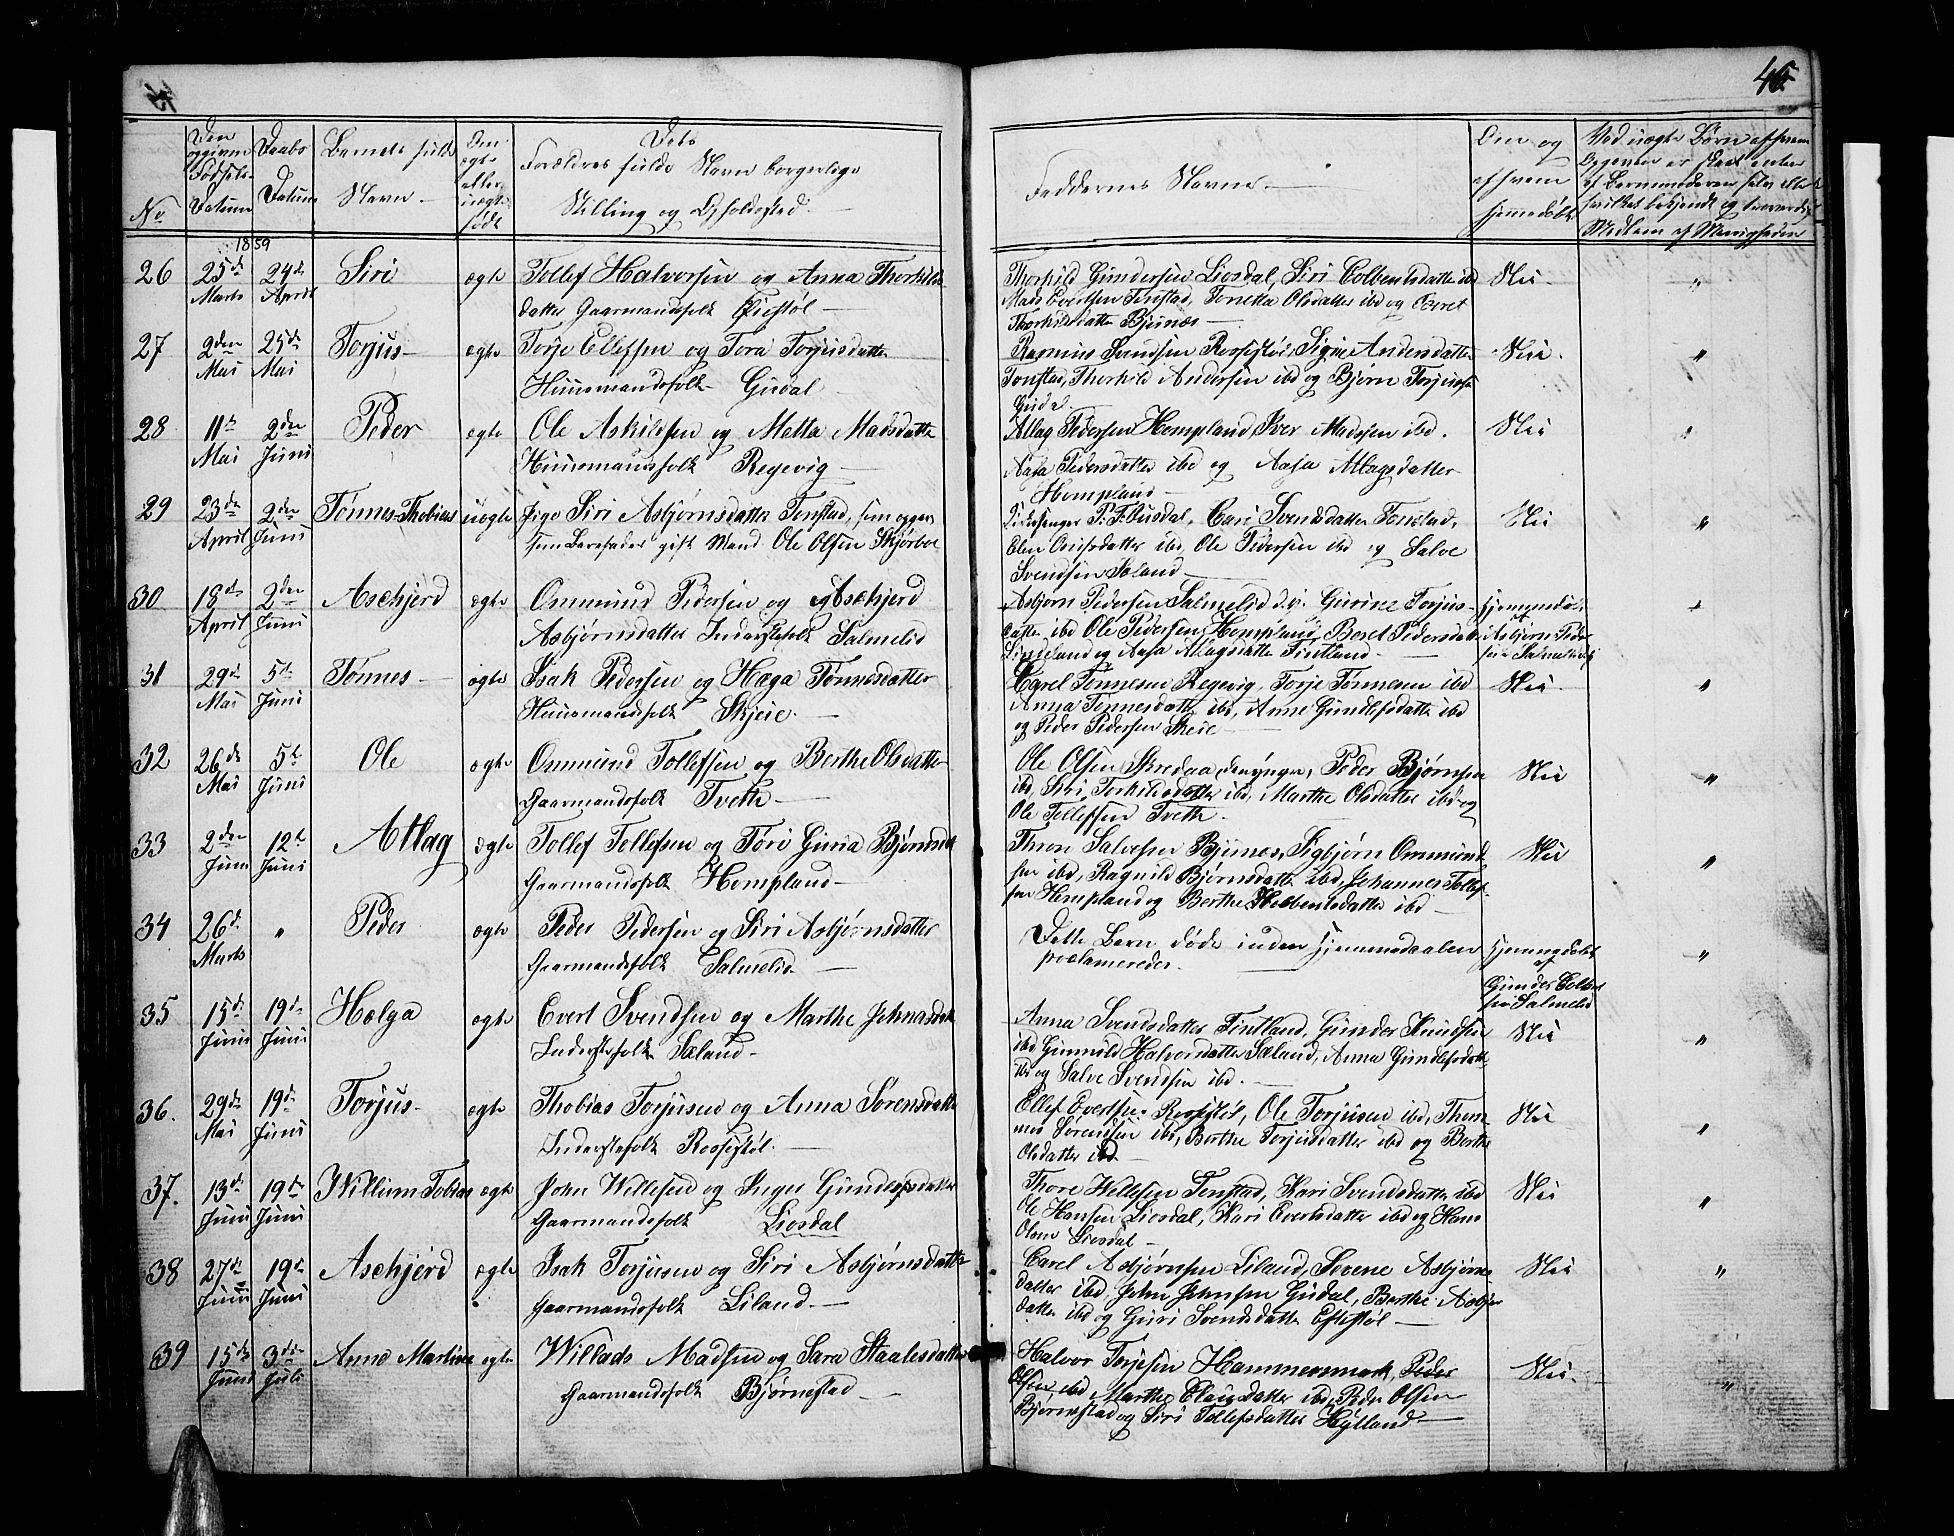 46
No
Den opgivne Fødsels-Datum
Daabs Datum
Barnets fulde Navn.
Om ægte eller uægte født
Dets Forældres fulde Navn borgerlige Stilling og Opholdssted.
Faddernes Navne.
Om og af hvem hjemmedøbt
Ved uægte Børn af hvem
1859
26 25de Marts 24de April Siri ægte Tollef Halvorsen og Anna Thorkils-
datter Gaarmandsfolk
Thorkild Gundersen Liosdal, Siri ibd
Mads Evertsen Tonstad, Tonetta Olsdatter ibd og Beret
Thorkilsdatter Bjunæs
Nei "
27 2den Mai 25de Mai Torjus ægte Torje Ellefsen og Tora Torjusdatter
Huusmandsfolk Gudal
Rasmus Svendsen Rossistøl, Signe Andersdatter
Tonstad, Thorkild Andersen ibd og Bjørn
Gudal
Nei. "
28 11te Mai 2den Juni Peder ægte Ole Askilsen og Metta Madsdatter
Huusmandsfolk Regevig
Atlag Pedersen Hompland, Iver Madssen ibd.
Aasa Pedersdatter ibd og Aasa Atlagsdatter
Hompland
Nei "
29 23de April 2den Juni Tønnes Thobias uægte Pige Siri Asbjørnsdatter Tonstad, som opgav
som Barnefader gift Mand Ole Olsen Skjørboe
P. F. Ousdal, Cari Svendsdatter Tonstad,
ibd, Ole Pedersen ibd og Salve
Svendsen Sæland
Nei "
30 18de April 2den Juni Aschjerd ægte Ommund Pedersen og Aschjerd
Asbjørnsdatter Inderstefolk Salmelid
Asbjørn Pedersen Salmelid d.y. Gurine Torjus-
datter ibd Ole Pedersen Hompland, Beret Pedersdatter
og Aasa Atlagsdatter Tintland.
Asbjørn Peder-
sen Salmelid
31 29de Mai 5te Juni Tønnes ægte Isak Pedersen og Hæga Tønnesdatter
Huusmandsfolk Skjeie.
Carel Tønnesen Regevig, Torje Tønnesen ibd
Anna Tønnesdatter ibd, Anne Gundlefsdatter ibd
og Peder Pedersen Skeie
Nei. "
32 26de Mai 5te Juni Ole ægte Ommund Tollefsen og Berthe Olsdatter
Gaarmandsfolk Tveth
Ole Olsen Skredaa, den yngre, Peder Bjørnsen
ibd, Siri Torkildsdatter ibd, Marthe Olsdatter ibd og
Ole Tollefsen Tveth.
Nei "
33 2den Juni 12te Juni Atlag ægte Tollef Tollefsen og Tori Guria Bjørnsd.
Gaarmandsfolk Hompland
Thore Salvesen Bjunes, Sigbjørn Ommund-
sen ibd, Ragnild Bjørnsdatter ibd, Johannes Tollef-
sen Hompland og Berthe ibd
Nei "
34 26de Marts " Peder ægte Peder Pedersen og Siri Asbjørnsdatter
Gaarmandsfolk Salmelid
Dette Barn døde inden Hjemmedaaben
proclameredes.
Hjemmedøbt
af
Gunder
Salmelid
"
35 15de Juni 19de Juni Hælga ægte Evert Svendsen og Marthe
Inderstefolk Sæland
Anna Svendsdatter Tintland, Gunder Knudsen
ibd Gunnild Halvorsdatter Sæland, Anna Gundlefsdat-
ter og Salve Svendsen ibd.
Nei "
36. 29de Mai 19de Juni Torjus ægte Thobias Torjusen og Anna Sørensdatter
Inderstefolk Rossistøl.
Ellef Evertsen Rossistøl, Ole Torjusen ibd, Thom-
mas Sørensen ibd, Berthe Torjusdatter ibd og Berthe
Olsdatter ibd
Nei "
37. 13de Juni 19de Juni Willum Tobias ægte John Willesen og Inger Gundlefsdatter
Gaarmandsfolk Liosdal
Thore Willesen Tonstad, Kari Svendsdatter ibd
Ole Hansen Liosdal, Kari Evertsdatter ibd og Hans
Olsen Liosdal
Nei "
38 27de Juni 19de Juni Aschjerd ægte Isak Torjusen og Siri Asbjørnsdatter
Gaarmandsfolk Liland.
Carel Asbjørnsen Liland, Severe Asbjørns-
datter ibd, John Johnsen Gudal, Berthe Asbjørns-
datter ibd og Guri Svendsdatter Eftestøl
Nei "
39 15de Juni 3die Juli Anne Martine ægte Willads Madsen og Sara Staalesdatter
Gaarmandsfolk Bjørnestad
Halvor Torjesen Hammersmark, Peder
Olsen ibd Marthe Clausdatter ibd, Peder Olsen
Bjørnestad og Siri Tollefsdatter Hylland
Nei. "